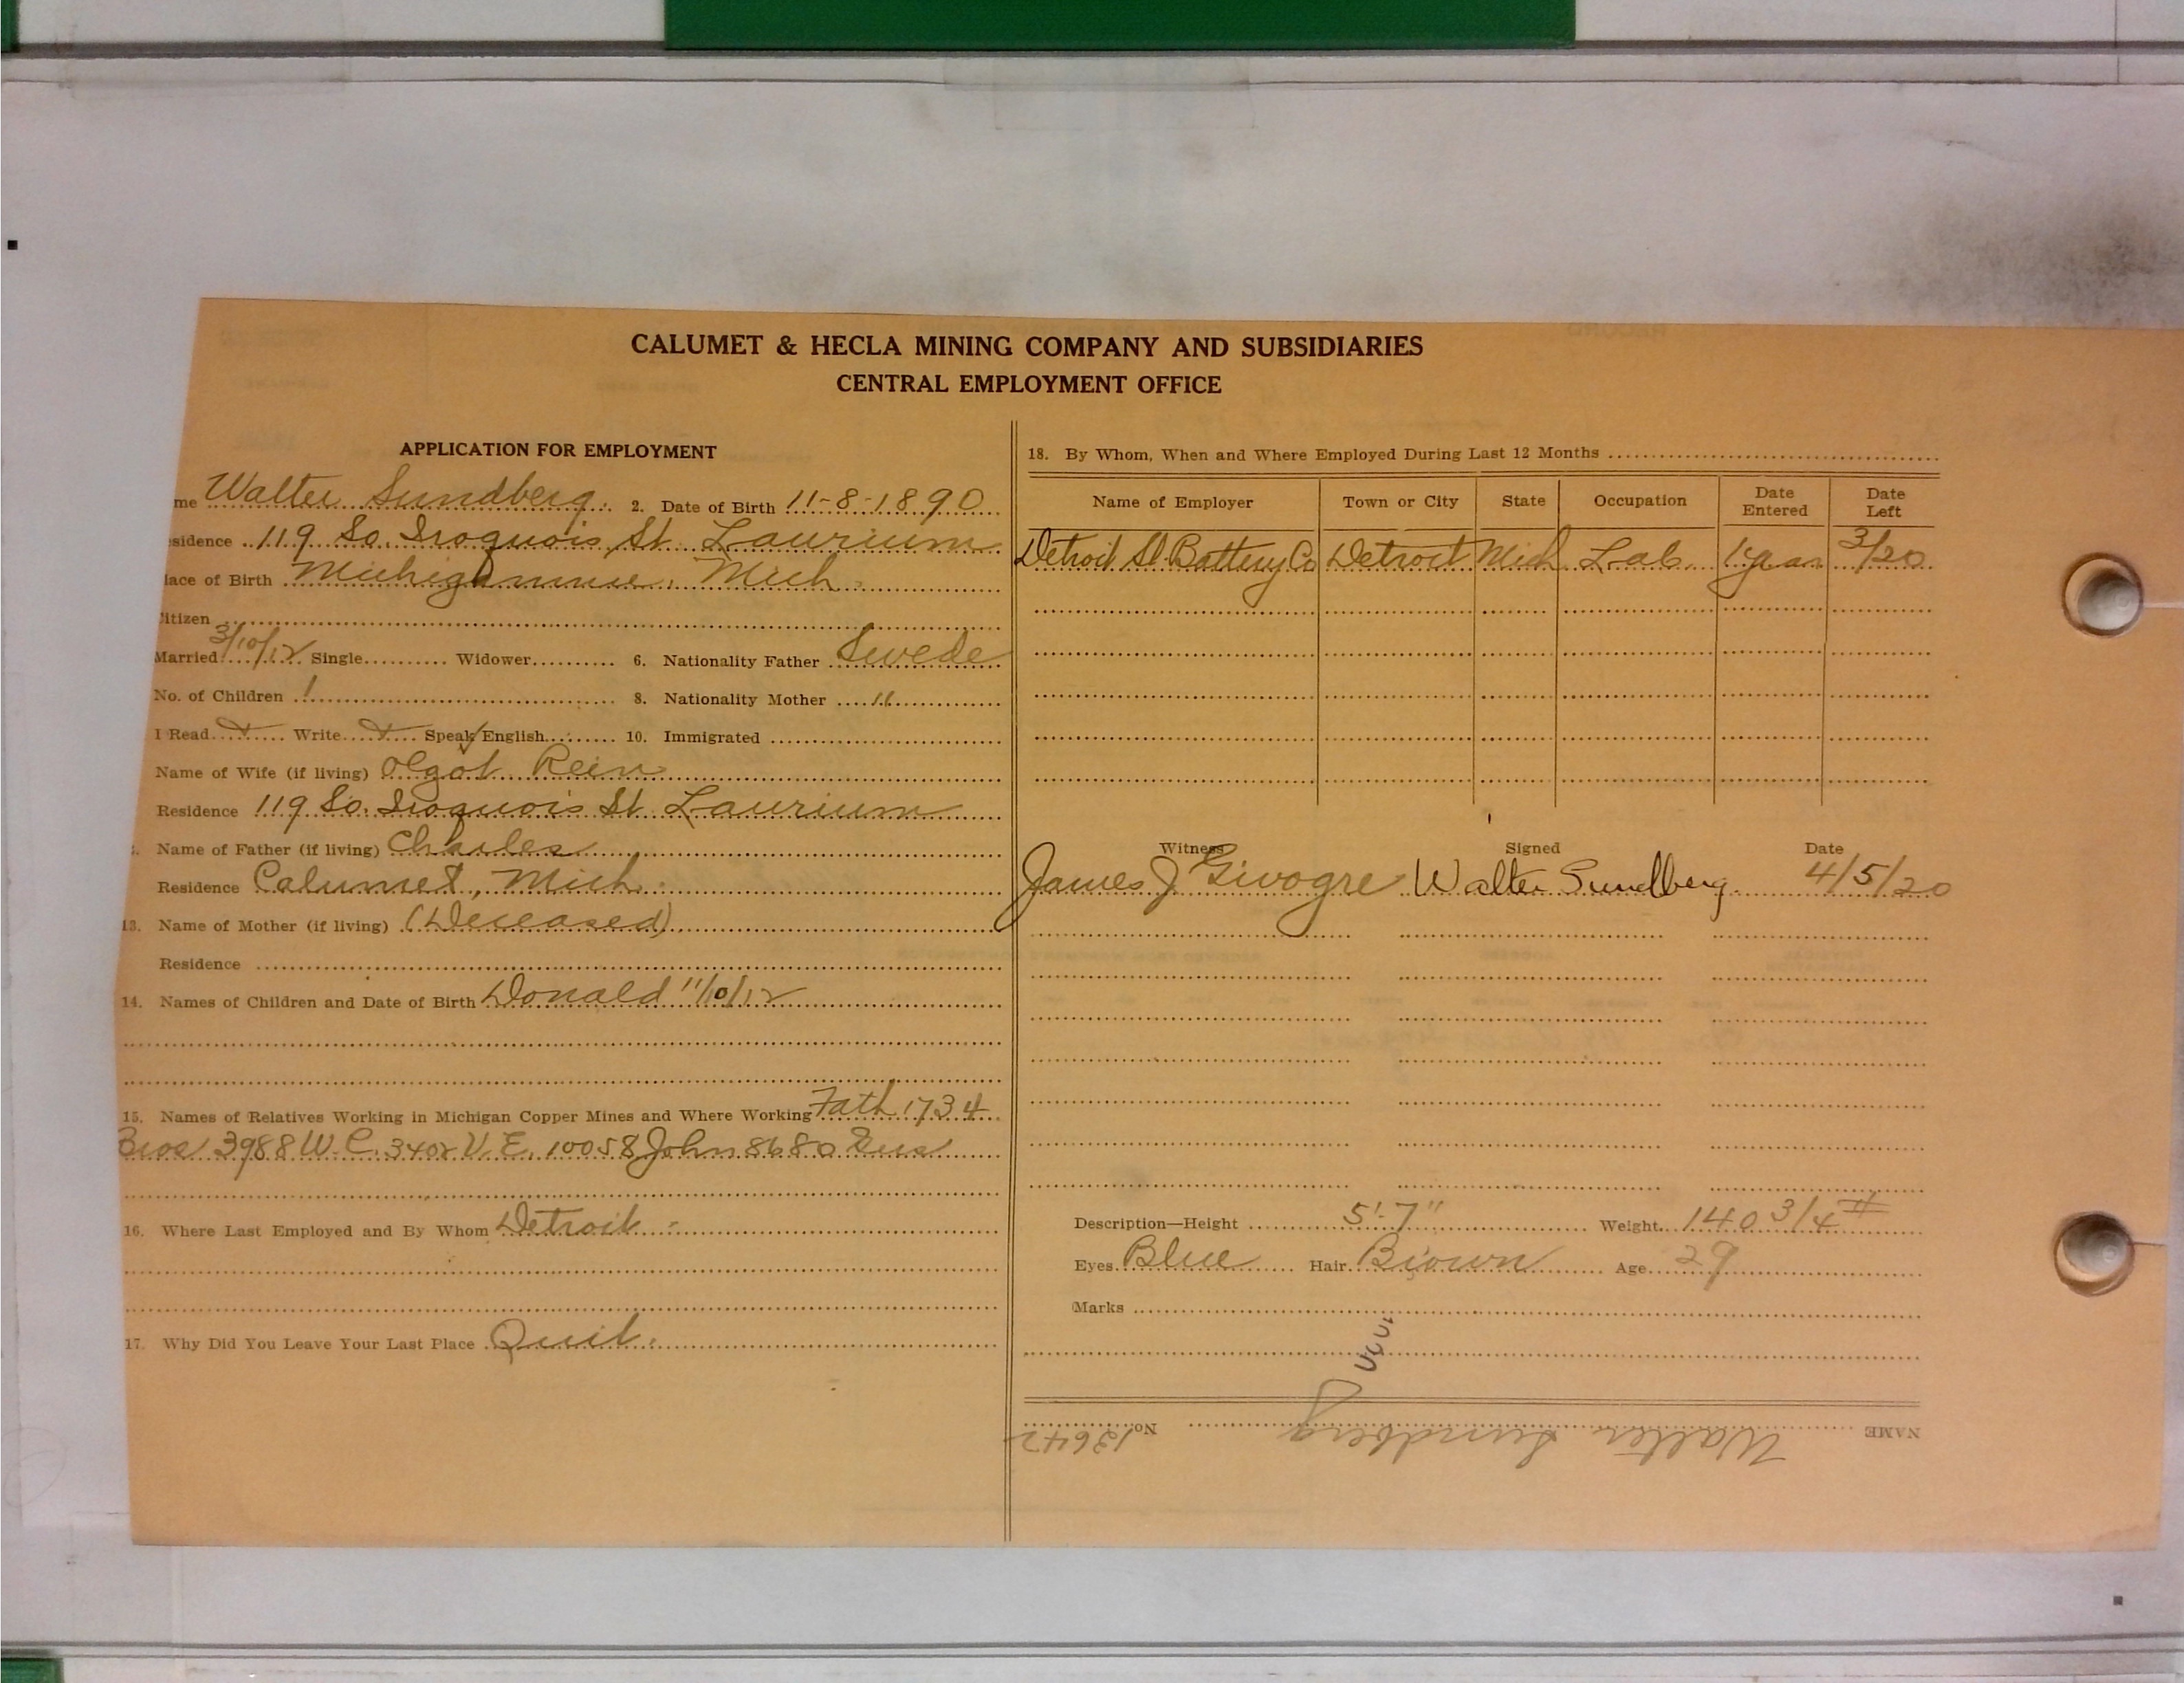 CALUMET & HECLA MINING COMPANY AND SUBSIDIARIES
CENTRAL EMPLOYMENT OFFICE
APPLICATION FOR EMPLOYMENT
me Walter Sundberg. 2. Date of Birth 11-8-1890
sidence 119 So. Iroquois St. Laurium
lace of Birth Michigamme, Mich.
itizen
Married 3/10/12 Single Widower 6. Nationality Father Swede
No. of Children 1 8. Nationality Mother "
I Read Write Speak English 10. Immigrated
Name of Wife (if living) Rein
Residence 119 So. Iroquois St Laurium
Name of Father (if living) Charles
Residence Calumet, Mich.
13. Name of Mother (if living) (Deceased)
Residence
14. Names of Children and Date of Birth Donald 11/10/12
15. Names of Relatives Working in Michigan Copper Mines and Where Working Fath 1734
Bros 3988 W.C. 3402 V.E. 10058 John 8680 Gus
16. Where Last Employed and By Whom Detroit
17. Why Did You Leave Your Last Place Quit.
18. By Whom, When and Where Employed During Last 12 Months
Name of Employer Town or City State Occupation Date Entered Date Left
Detroit St. Battery Co Detroit Mich. Lab. 1 year 3/20
Witness Signed Date
James J Givogre Walter Sundberg. 4/5/20
Description—Height 5'-7" Weight 140 3/4 #
Eyes Blue Hair Brown Age 29
Marks
NAME Walter Sundberg No. 13642